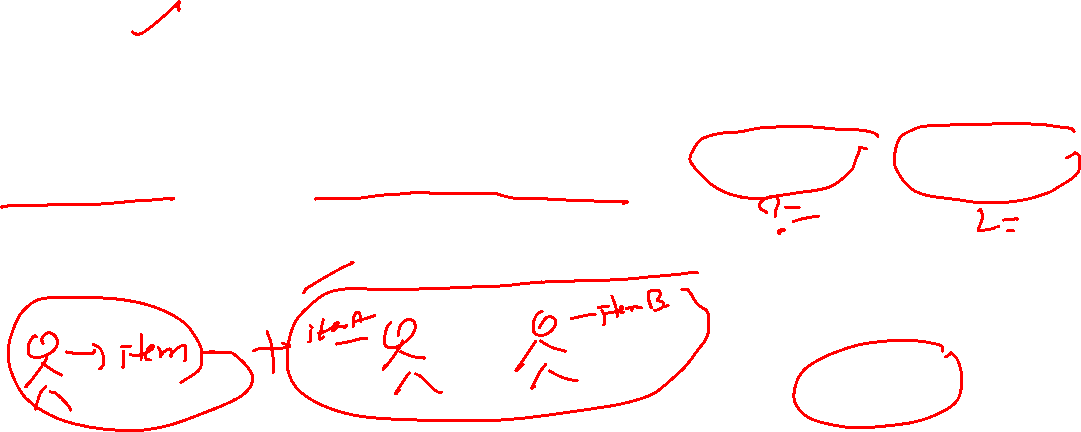 ? =
2 =
item + item A item B